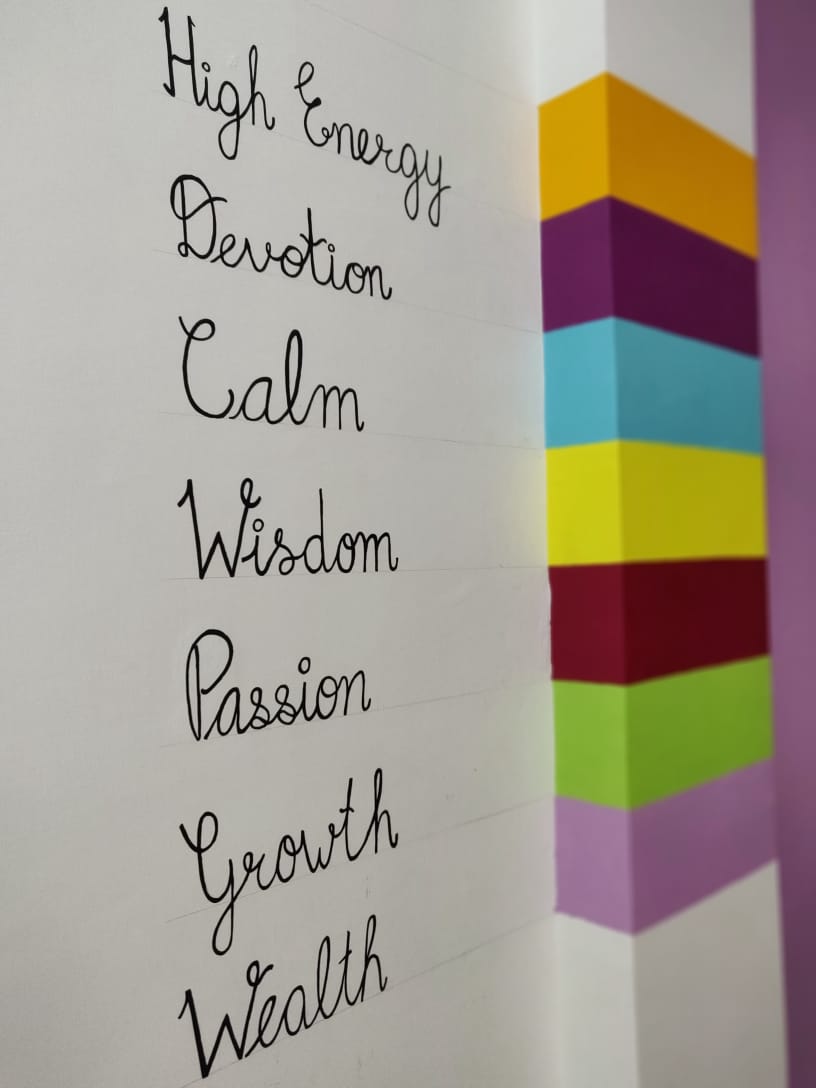 High Energy
Devotion
Calm
Wisdom
Passion
Growth
Wealth